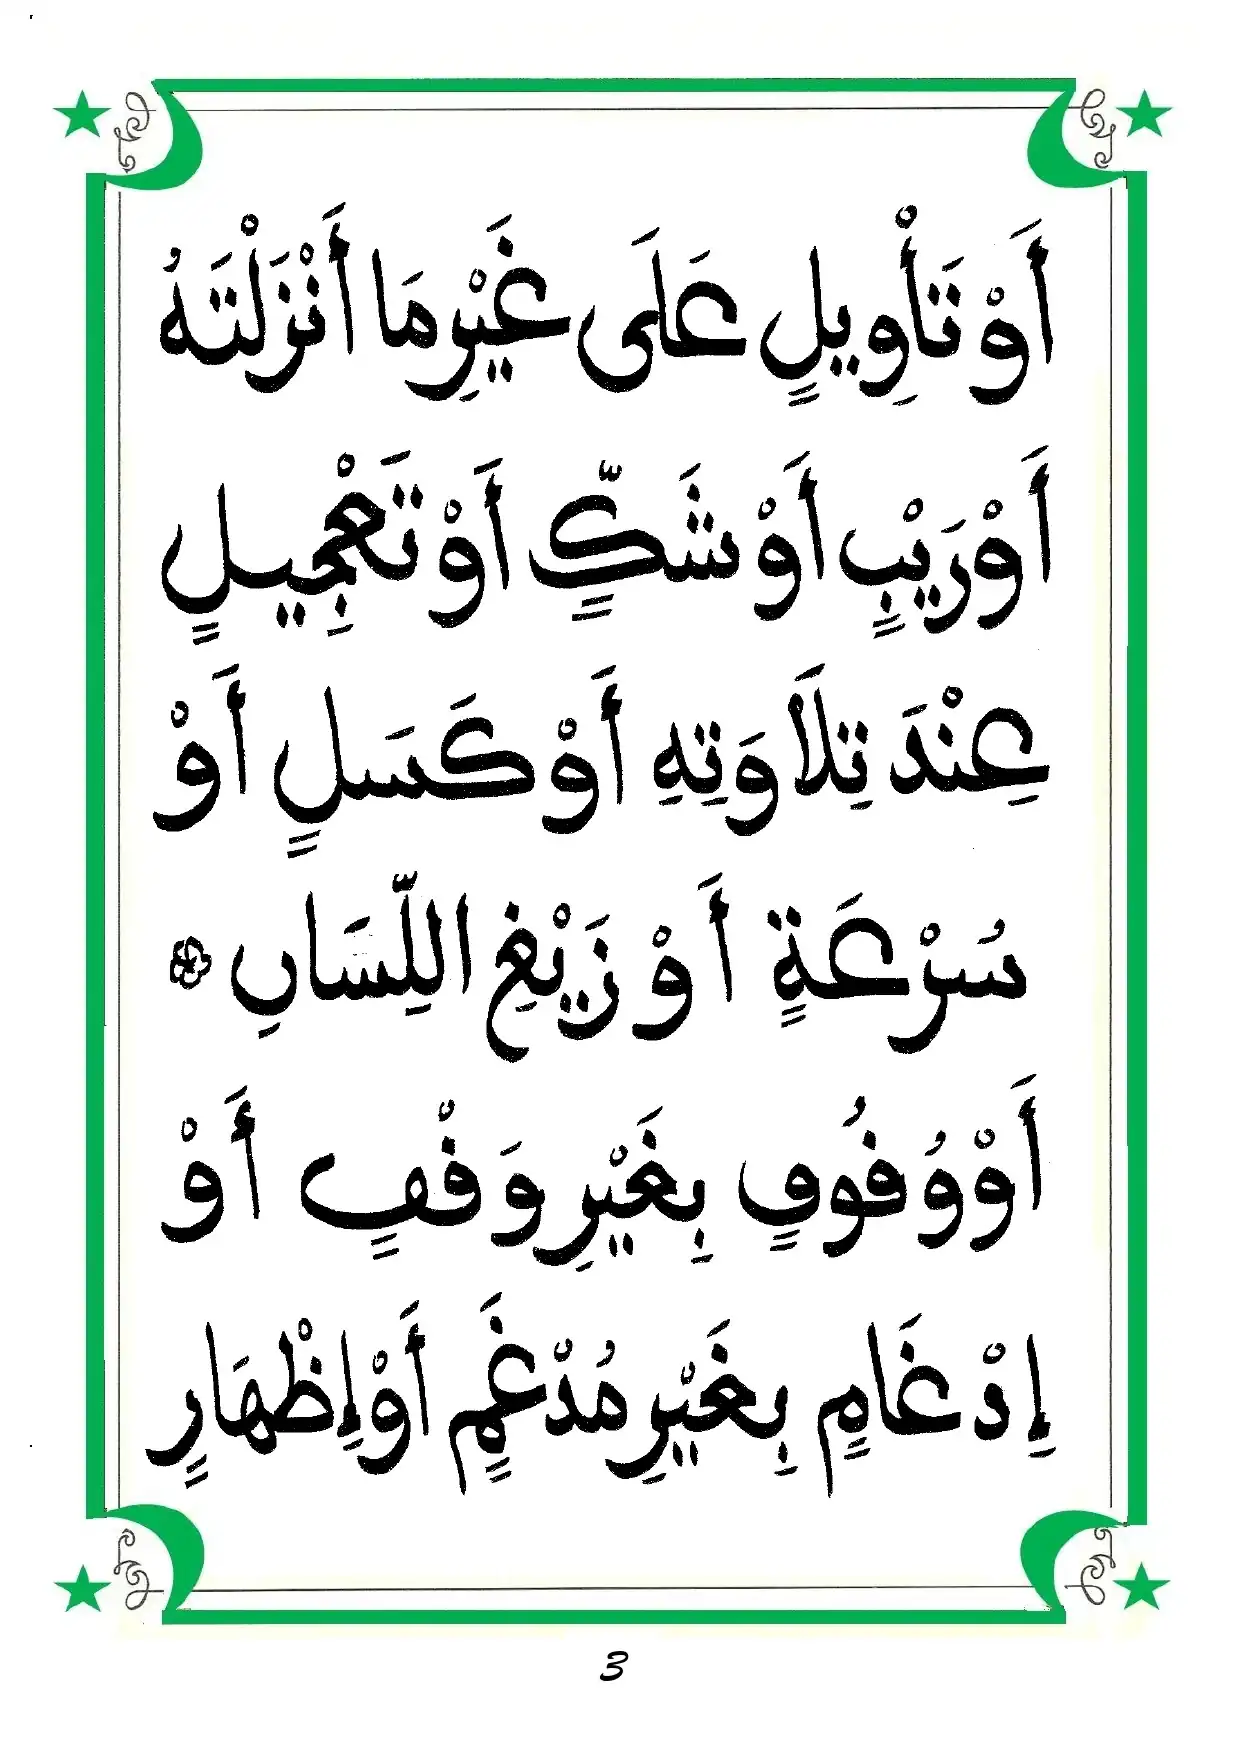 أَوْ تَأْوِيلٍ عَلَى غَيْرِ مَا أَنْزَلْتَهُ
أَوْ رَيْبٍ أَوْ شَكٍّ أَوْ تَعْجِيلٍ
عِنْدَ تِلَاوَتِهِ أَوْ كَسَلٍ أَوْ
سُرْعَةٍ أَوْ زَيْغِ اللِّسَانِ
أَوْ وُقُوفٍ بِغَيْرِ وَقْفٍ أَوْ
إِدْغَامٍ بِغَيْرِ مُدْغَمٍ أَوْ إِظْهَارٍ
3